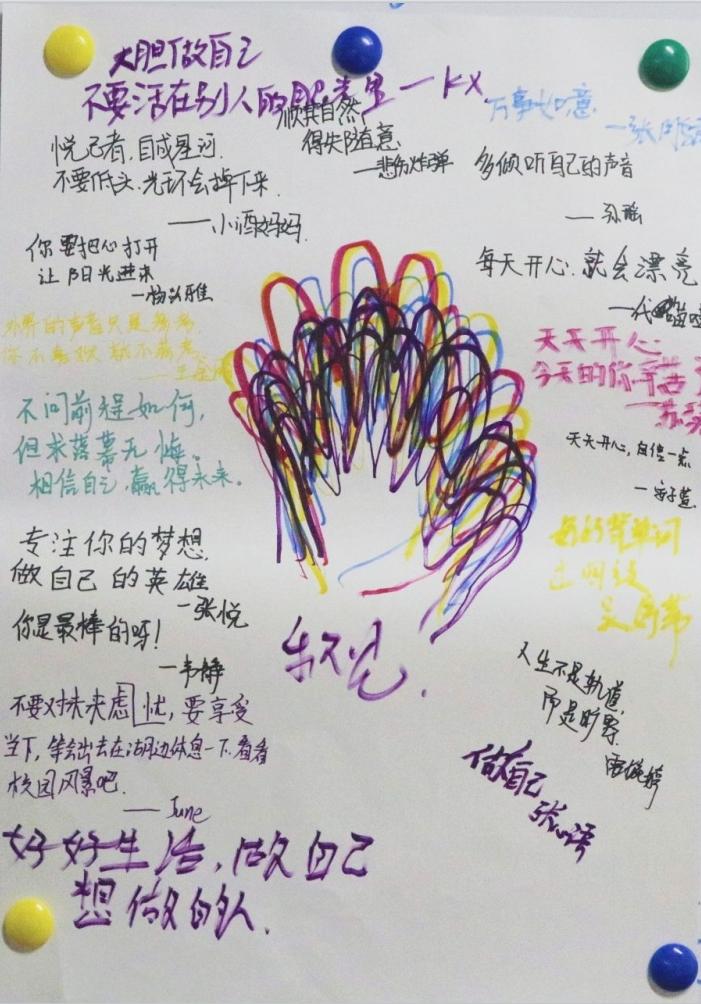 大胆做自己
不要活在别人的眼光里—KX
顺其自然
得失随意
—悲伤炸弹
万事如意
悦己者,自成星河
不要低头,光环会掉下来
——小酒妈妈
多倾听自己的声音
你要把心打开
让阳光进来
每天开心,就会漂亮
外界的声音只是参考,
你不喜欢就不参考
天天开心
今天的你辛苦了
不问前程如何,
但求落幕无悔。
相信自己,赢得未来。
天天开心,自信一点
专注你的梦想,
做自己的英雄
—张悦
你是最棒的呀!
—韦静
人生不是轨道,
而是旷野
不要对未来虑忧,要享受
当下,等会出去在湖边休息一下,看看
校园风景吧.
——June
做自己
好好生活,做自己
想做的人.